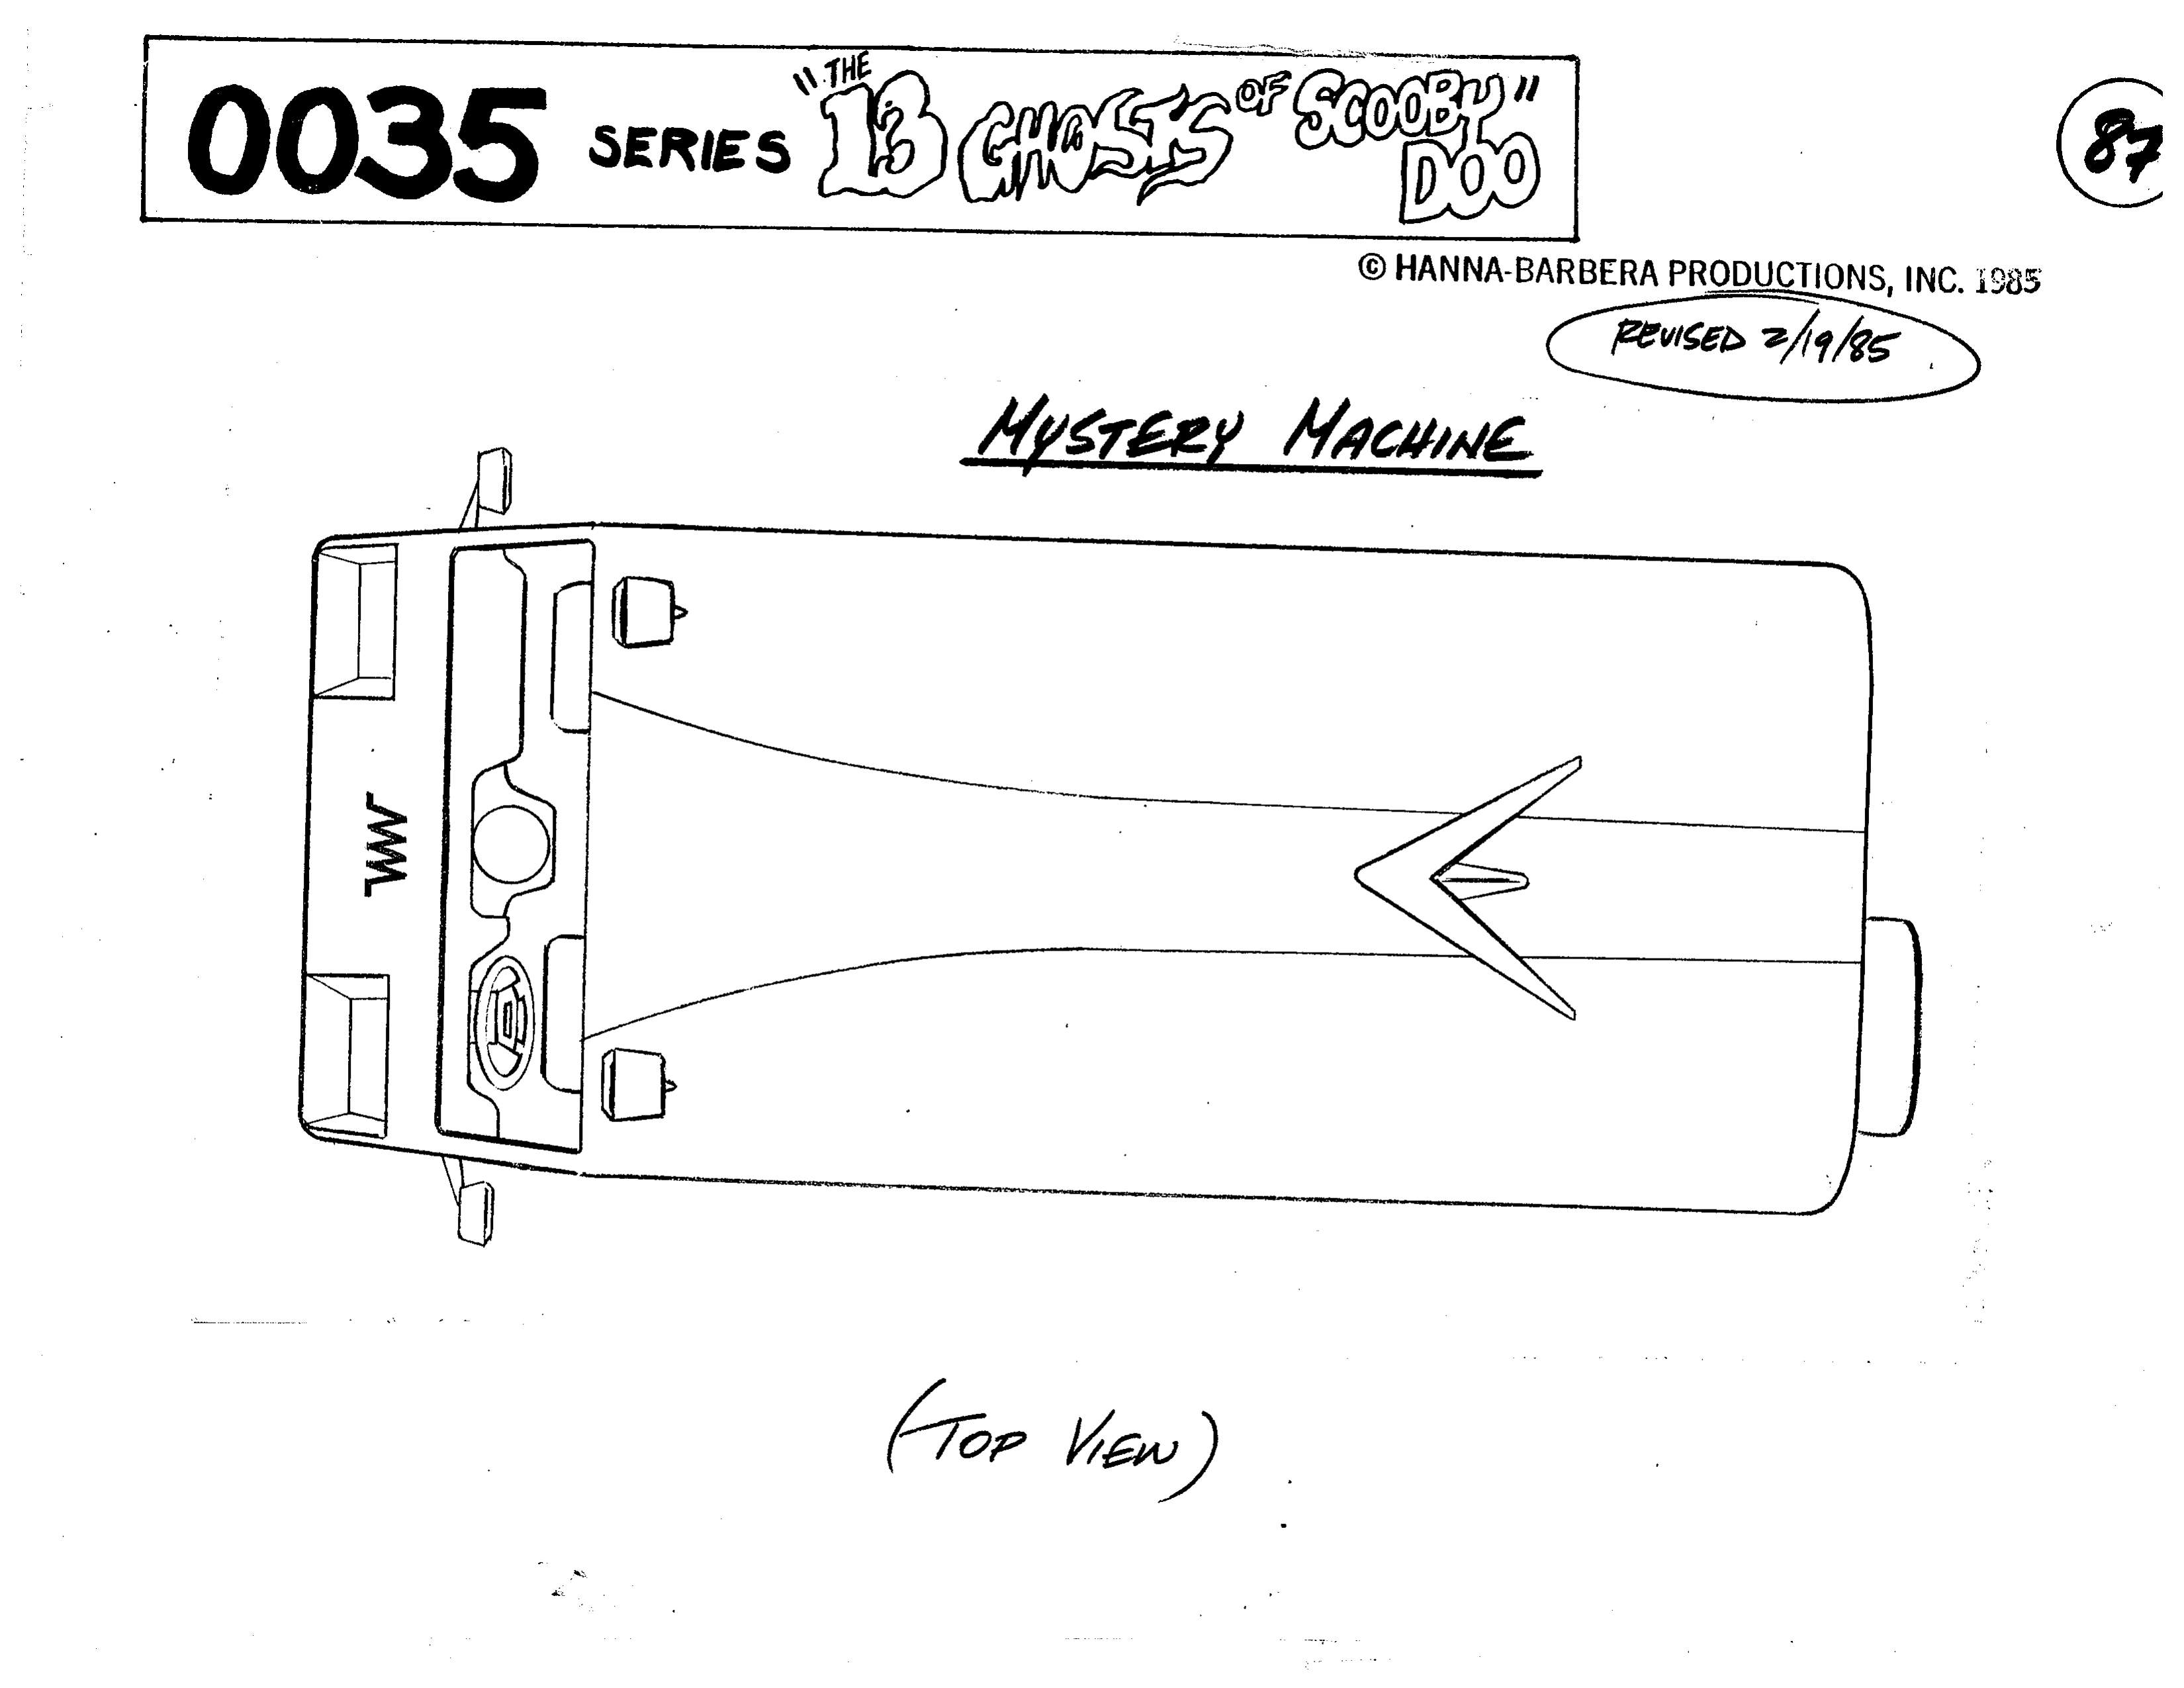 0035 SERIES "THE 13 GHOSTS OF SCOOBY DOO"
87
© HANNA-BARBERA PRODUCTIONS, INC. 1985
REVISED 2/19/85
MYSTERY MACHINE
(TOP VIEW)